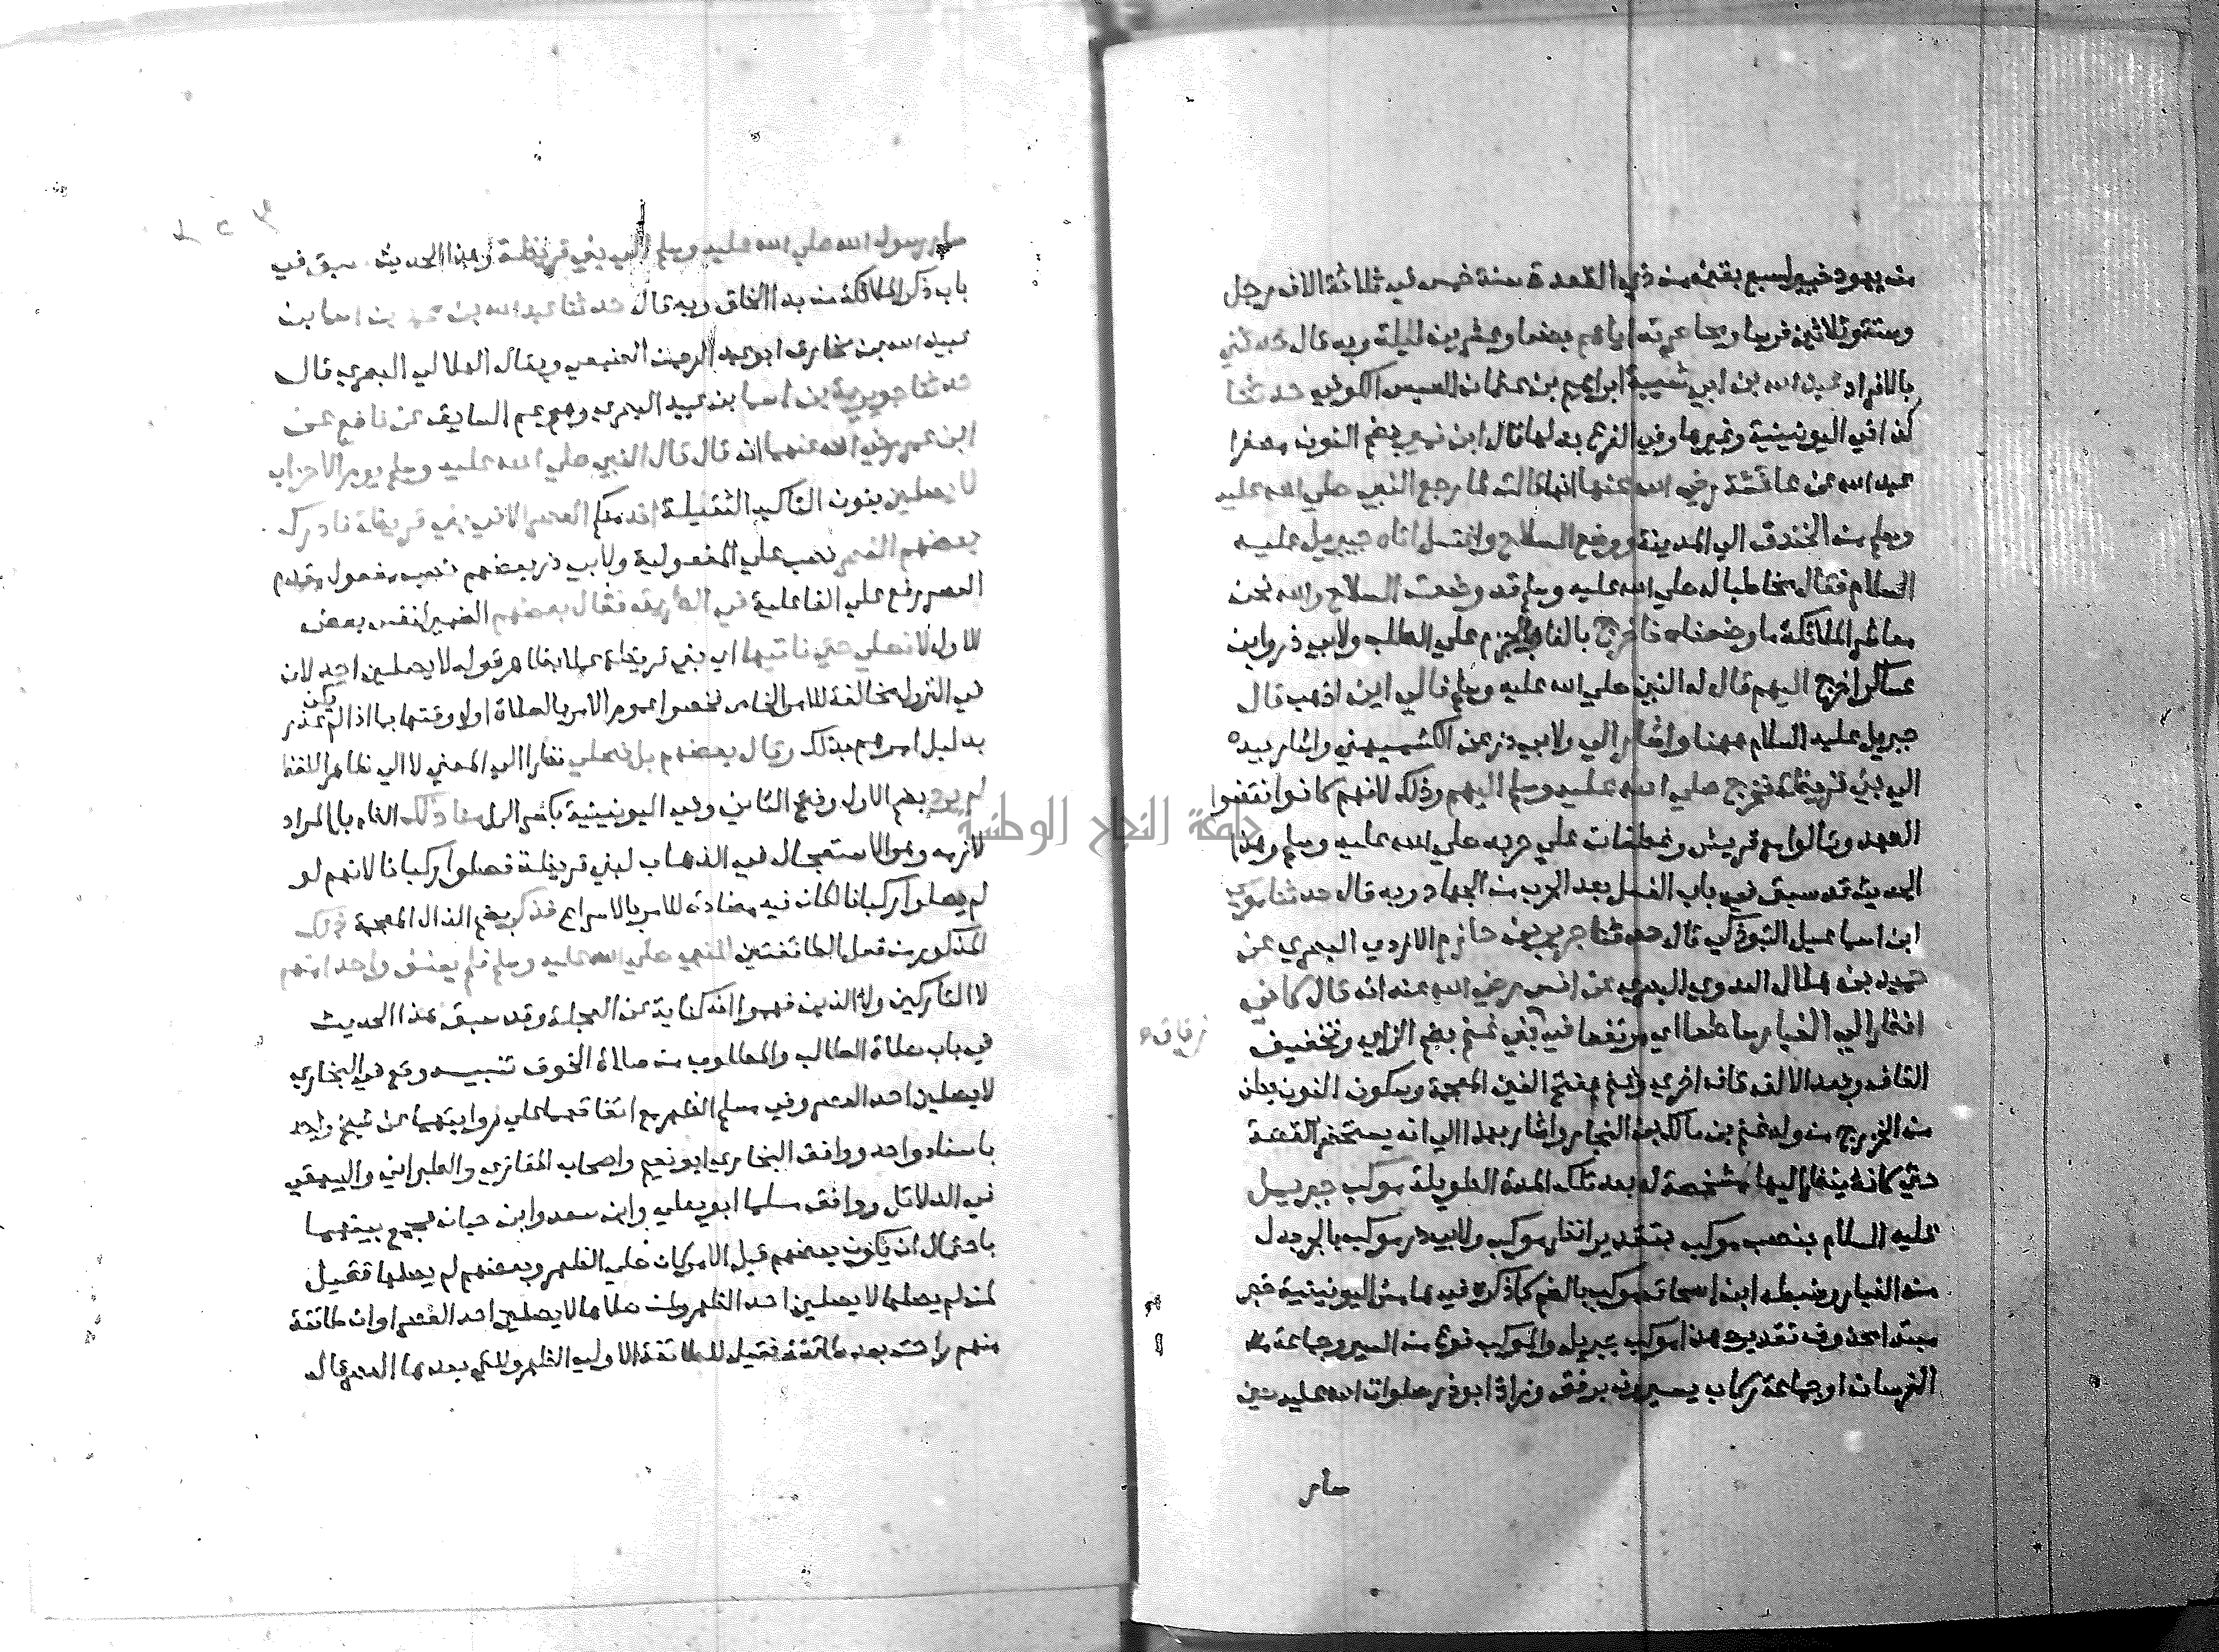 من يهود خيبر لسبع بقين من ذي القعدة سنة خمس في ثلاثة الاف رجل
وستة وثلاثين فرسا وحاصرته اياهم بضعا وعشرين ليلة وبه قال حدثني
بالافراد عبد الله بن ابي شيبة ابراهيم بن عثمان العبسي الكوفي حدثنا
كذا في اليونينية وغيرها وفي الفرع بدلها قال ابن نمير بضم النون مصغرا
عبد الله عن عائشة رضي الله عنها انها قالت لما رجع النبي صلي الله عليه
وسلم من الخندق الي المدينة ووضع السلاح واغتسل اتاه جبريل عليه
السلام فقال مخاطبا له صلي الله عليه وسلم قد وضعت السلاح والله نحن
معاشر الملائكة ما وضعناه فاخرج بالفا والجزم علي الطلب ولابي ذر وابن
عساكر اخرج اليهم قال له النبي صلي الله عليه وسلم فالي اين اذهب قال
جبريل عليه السلام ههنا واشار الي ولابي ذر عن الكشميهني واشار بيده
الي بني قريظة فخرج صلي الله عليه وسلم اليهم وذلك لانهم كانوا نقضوا
العهد وتمالوا مع قريش وغطفان علي حربه صلي الله عليه وسلم وهذا
الحديث قد سبق في باب الغسل بعد الحرب من الجهاد وبه قال حدثنا موسي
ابن اسماعيل التبوذكي قال حدثنا جرير بن حازم الازدي البصري عن
حميد بن هلال العدوي البصري عن انس رضي الله عنه انه قال كاني
انظر الي الغبار ساطعا اي مرتفعا في بني غنم بضم الزاي وتخفيف
زقاق
القاف وبعد الالف قاف اخري وغنم بفتح الغين المعجمة وسكون النون بطن
من الخزرج من ولد غنم بن مالك بن النجار واشار بهذا الي انه يستحضر القصة
حتي كانه ينظر اليها مشخصة له بعد تلك المدة الطويلة موكب جبريل
عليه السلام بنصب موكب بتقدير انظر موكب ولابي ذر موكب بالجر بدل
من الغبار وضبطه ابن اسحاق موكب بالضم كما ذكره في هامش اليونينية خبر
مبتدا محذوف تقديره هذا موكب جبريل والموكب نوع من السير وجماعة
الفرسان او جماعة ركاب يسيرون برفق وزاد ابو ذر صلوات الله عليه حين
سار
سار رسول الله صلي الله عليه وسلم الي بني قريظة وهذا الحديث سبق في
باب ذكر الملائكة من بدا الخلق وبه قال حدثنا عبد الله بن محمد بن اسما بن
عبيد الله بن مخارق ابو عبد الرحمن الضبعي ويقال الهلالي البصري قال
حدثنا جويرية بن اسما بن عبيد البصري وهو عم السابق عن نافع عن
ابن عمر رضي الله عنهما انه قال قال النبي صلي الله عليه وسلم يوم الاحزاب
لا يصلين بنون التاكيد الثقيلة احد منكم العصر الا في بني قريظة فادرك
بعضهم العصر نصب علي المفعولية ولابي ذر بعضهم نصب مفعول مقدم
العصر رفع علي الفاعلية في الطريق فقال بعضهم الضمير لنفس بعض
الاول لا نصلي حتي ناتيها اي بني قريظة عملا بظاهر قوله لا يصلين احد لان
في النزول مخالفة للامر الخاص فخصوا عموم الامر بالصلاة اول وقتها بما اذا لم يكن عذر
بدليل امرهم بذلك وقال بعضهم بل نصلي نظرا الي المعني لا الي ظاهر اللفظ
لم يرد بضم الاول وفتح الثاني وفي اليونينية بكسر الرا منا ذلك الظاهر بل المراد
لازمه وهو الاستعجال في الذهاب لبني قريظة فصلوا ركبانا لانهم لو
لم يصلوا ركبانا لكان فيه مضادة للامر بالاسراع فذكر بضم الذال المعجمة ذلك
المذكور من فعل الطائفتين للنبي صلي الله عليه وسلم فلم يعنف واحدا منهم
لا التاركين ولا الذين فهموا انه كناية عن العجلة وقد سبق هذا الحديث
في باب صلاة الطالب والمطلوب من صلاة الخوف تنبيه وقع في البخاري
لا يصلين احد العصر وفي مسلم الظهر مع اتفاقهما علي روايتهما عن شيخ واحد
باسناد واحد ووافق البخاري ابو نعيم واصحاب المغازي والطبراني والبيهقي
في الدلائل ووافق مسلما ابو يعلي وابن سعد وابن حبان فيجمع بينهما
باحتمال ان يكون بعضهم قبل الامر كان صلي الظهر وبعضهم لم يصلها فقيل
لمن لم يصلها لا يصلين احد الظهر ولمن صلاها لا يصلين احد العصر او ان طائفة
منهم راحت بعد طائفة فقيل للطائفة الاولي الظهر وللتي بعدها العصر قال
جامعة النجاح الوطنية